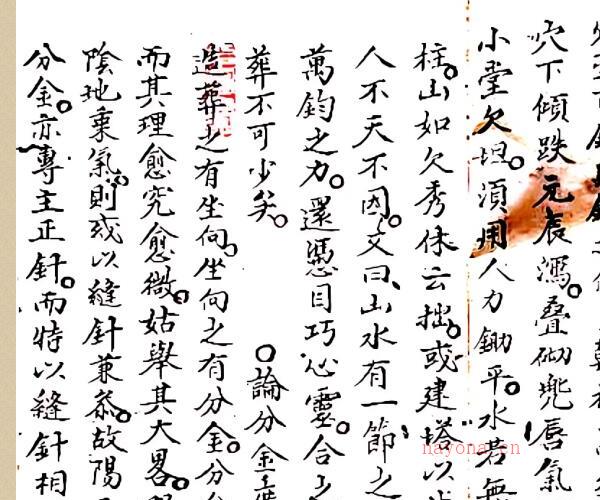 穴下傾跌元辰瀉。疊砌兠唇氣
小堂欠坦。須用人力鋤平。水若無
柱。山如欠秀休云拙。或建塔以
人不天不因。文曰、山水有一節之
萬鈞之力。還憑目巧心靈。合
葬不可少矣。〇論分金
造葬之有坐向。坐向之有分金。分
而其理愈究愈微。姑舉其大畧
陰地乘氣。則或以縫針兼叅。故陽
分金。亦專主正針。而特以縫針相
nayona.cn